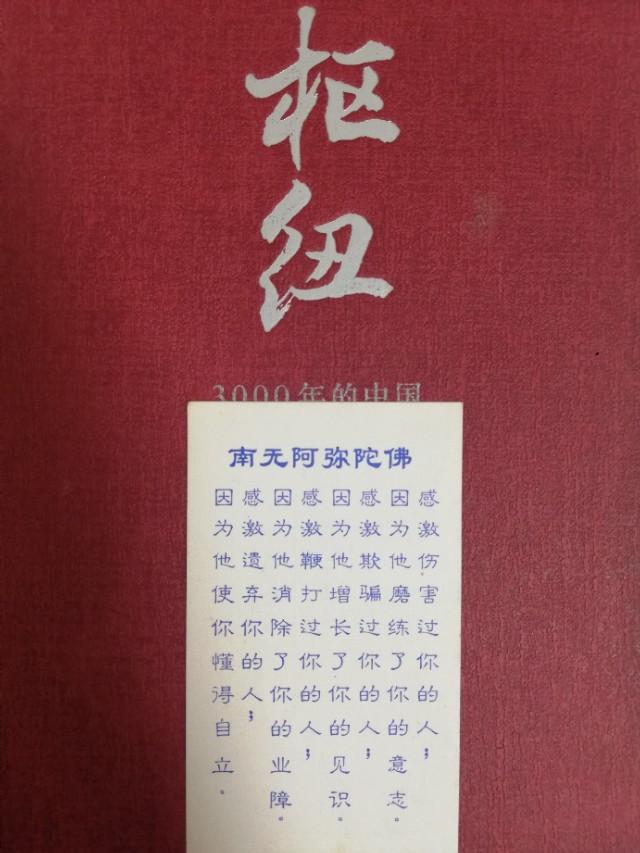 枢纽
3000年的中国
南无阿弥陀佛
感激伤害过你的人；
因为他磨练了你的意志。
感激欺骗过你的人；
因为他增长了你的见识。
感激鞭打过你的人；
因为他消除了你的业障。
感激遗弃你的人；
因为他使你懂得自立。